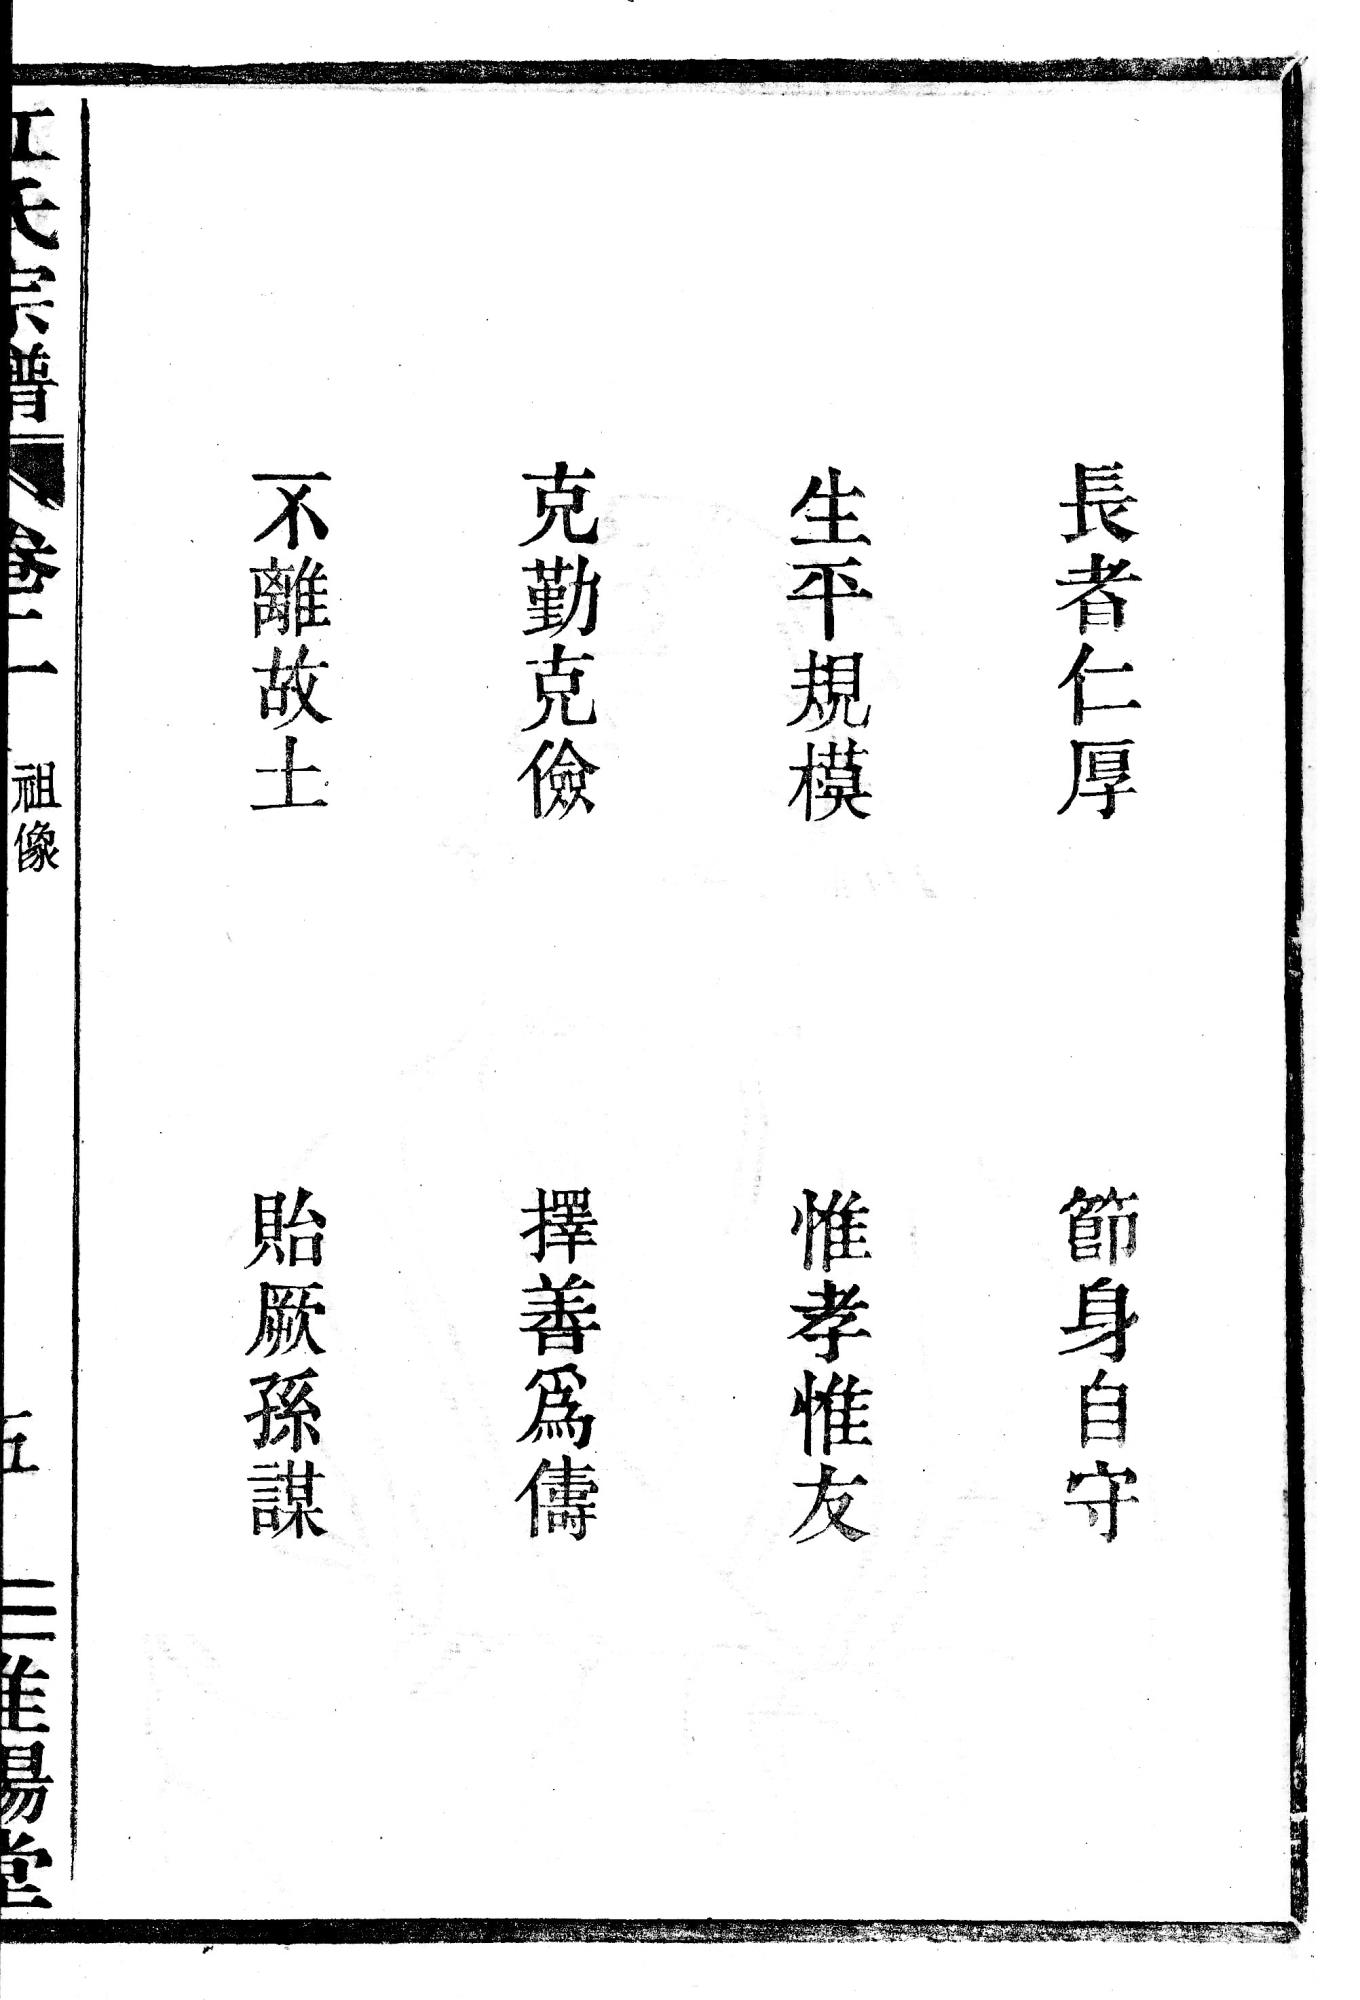 長者仁厚　節身自守
生平規模　惟孝惟友
克勤克儉　擇善爲儔
不離故土　貽厥孫謀
江氏宗譜　卷二　祖像　五　淮陽堂